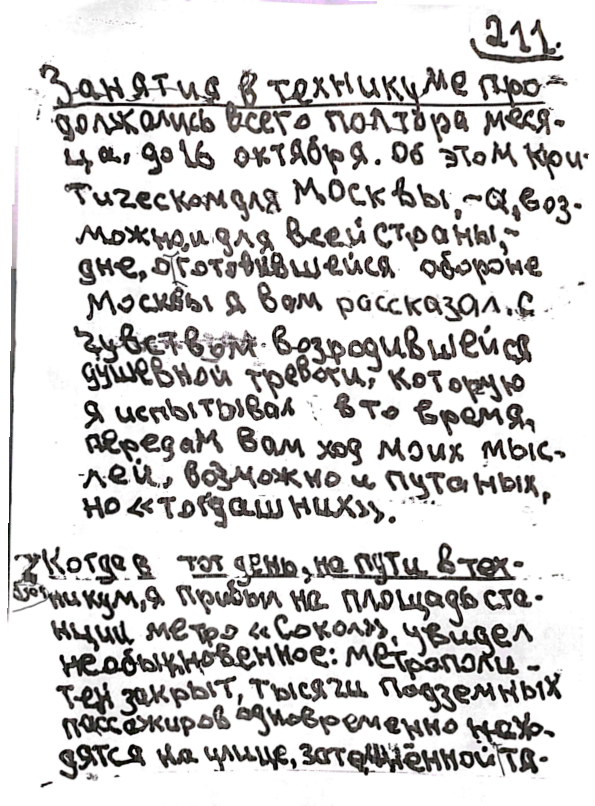 211.
Занятия в техникуме про-
должались всего полтора меся-
ца, до 16 октября. Об этом кри-
тическом для Москвы, - а, воз-
можно, и для всей страны, -
дне, о готовившейся обороне
Москвы я вам рассказал. С
чувством возродившейся
душевной тревоги, которую
я испытывал в то время,
передам вам ход моих мыс-
лей, возможно и путаных,
но «тогдашних».
Когда в тот день, на пути в тех-
никум, я прибыл на площадь ста-
нции метро «Сокол», увидел
необыкновенное: метрополи-
тен закрыт, тысячи подземных
пассажиров одновременно нахо-
дятся на улице, затемнённой тя-